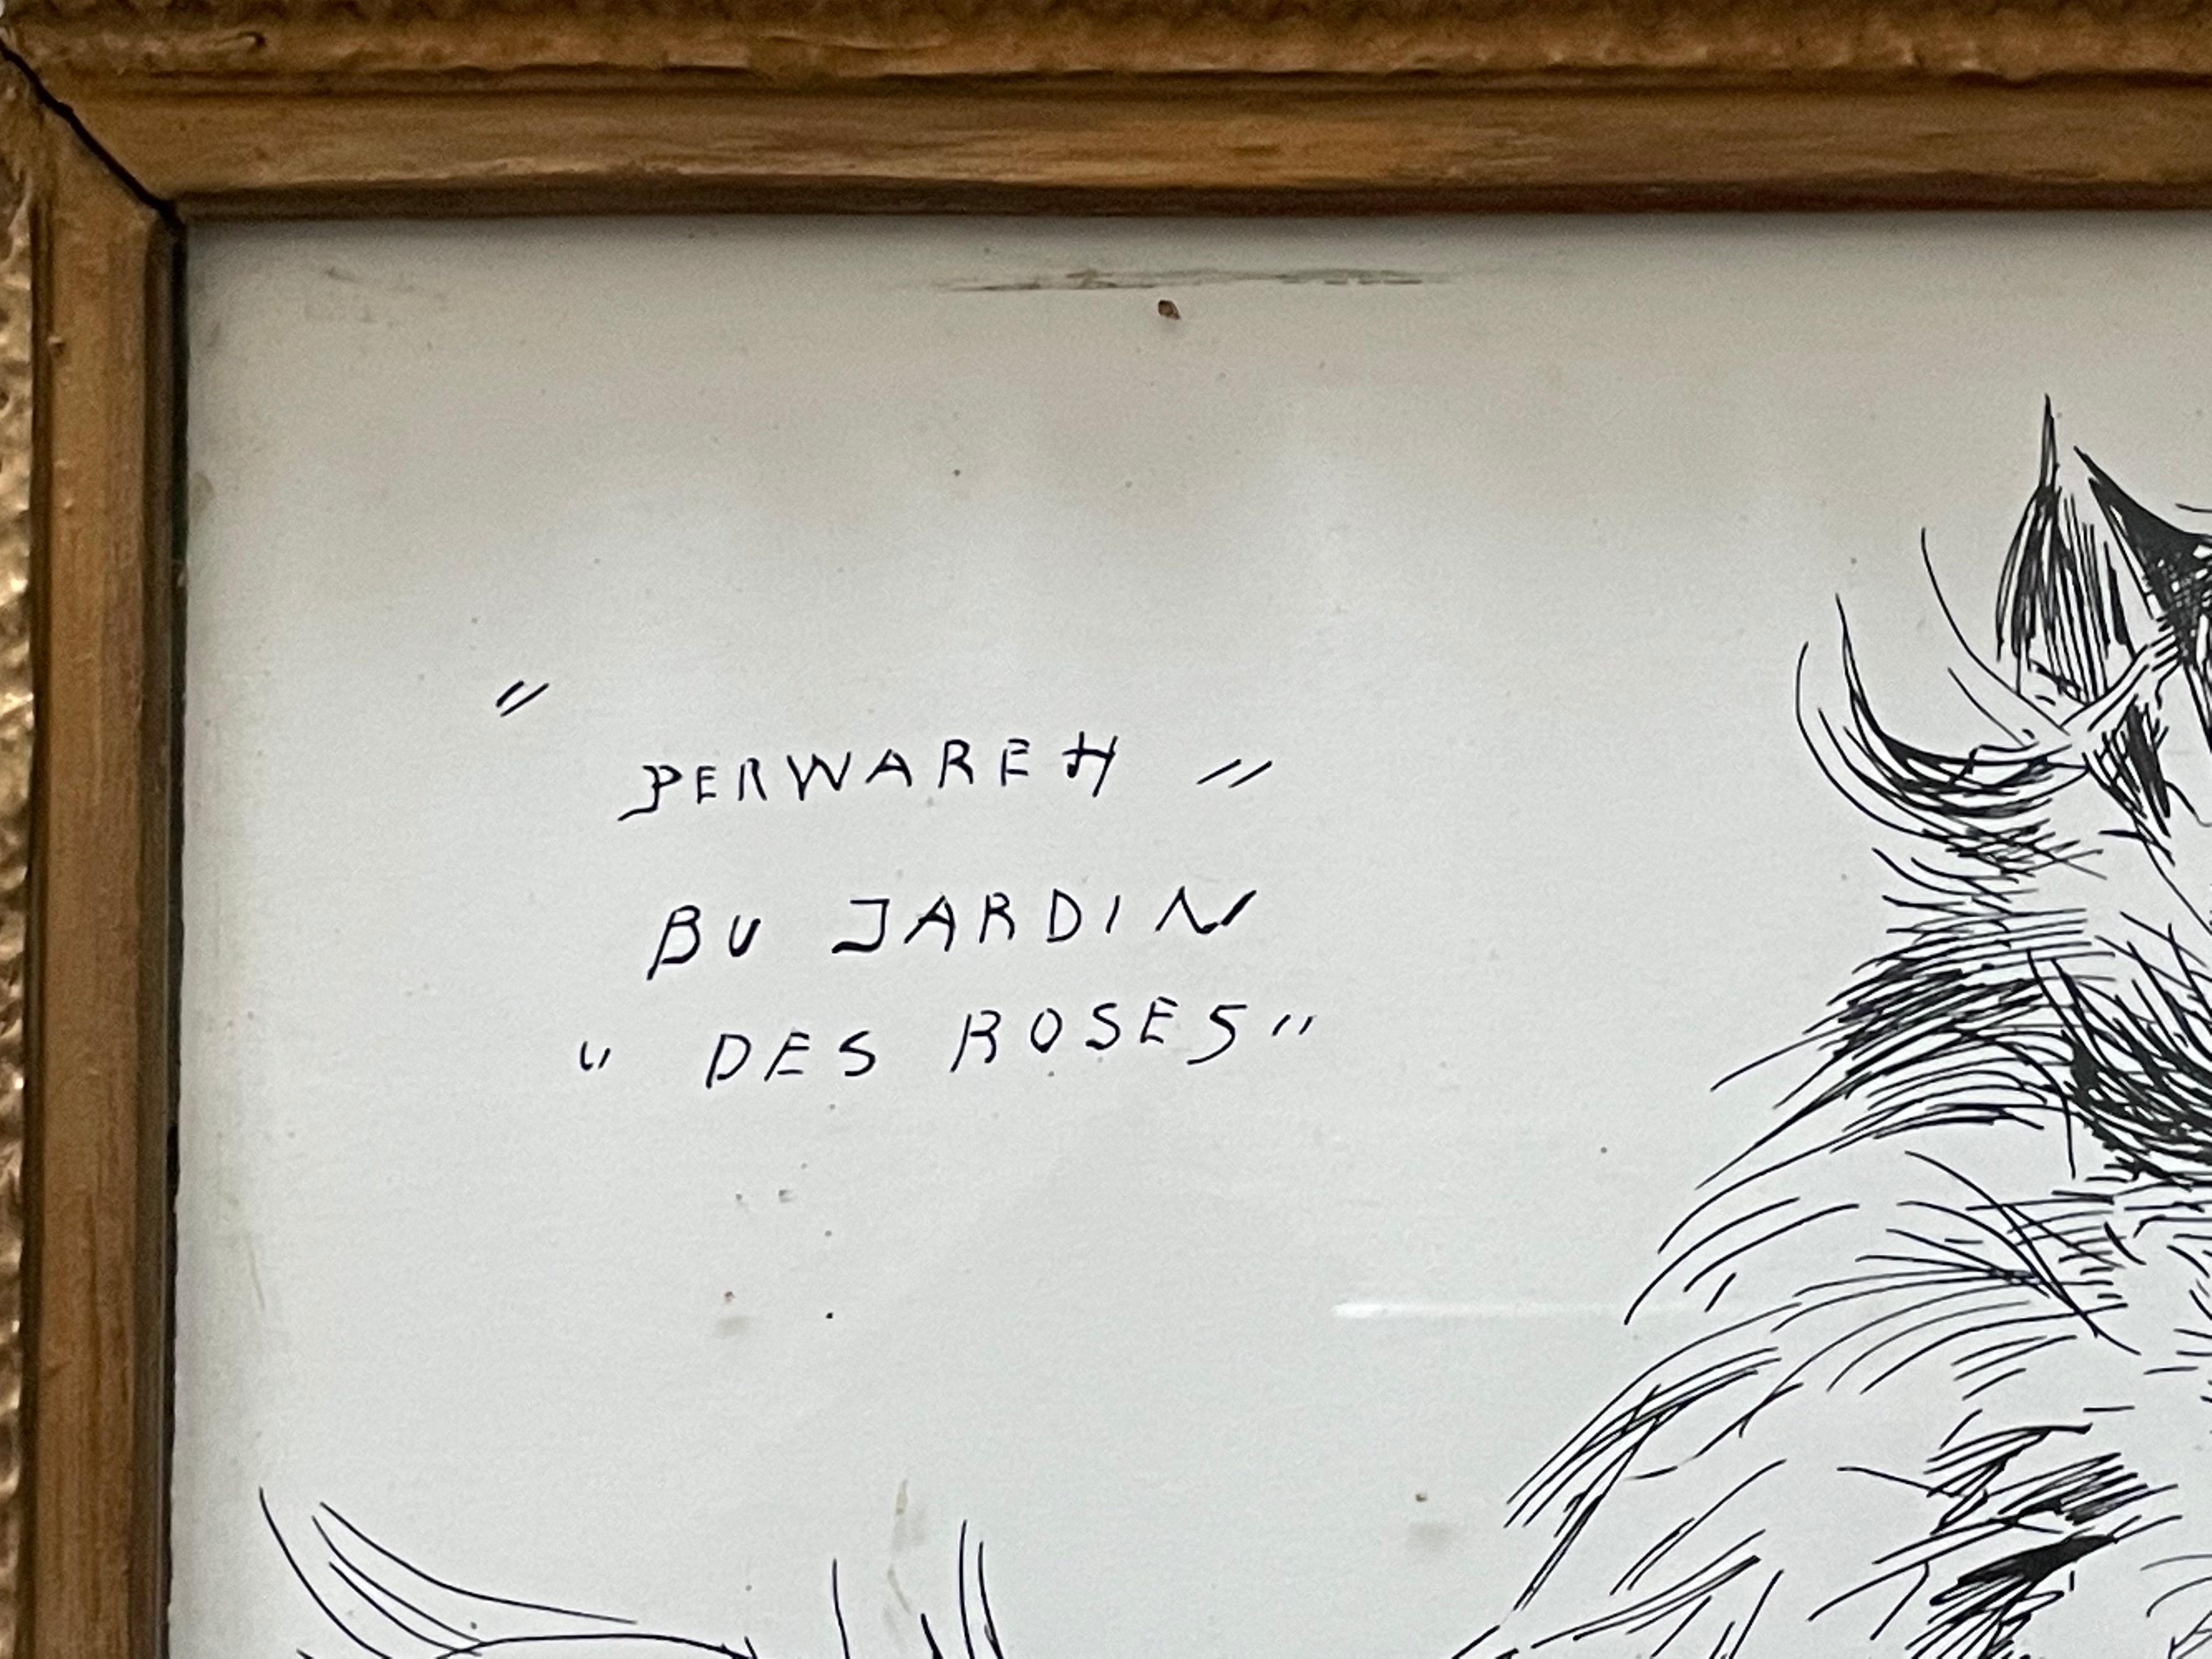 " PERWAREH "
BU JARDIN
" DES ROSES "